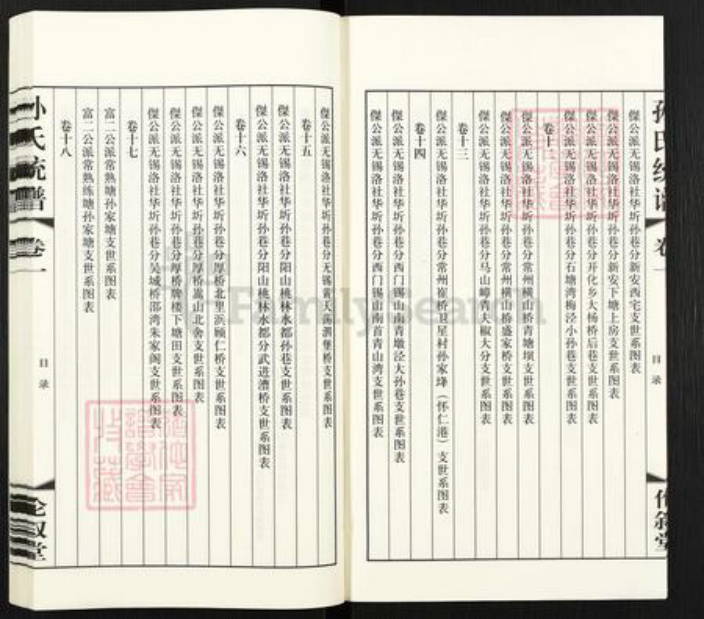 孙氏统谱
卷一
目录
傑公派无锡洛社华圻孙巷分新安西宅支世系图表
傑公派无锡洛社华圻孙巷分新安下塘上房支世系图表
傑公派无锡洛社华圻孙巷分开化乡大杨桥后巷支世系图表
傑公派无锡洛社华圻孙巷分石塘湾梅泾小孙巷支世系图表
傑公派无锡洛社华圻孙巷分常州横山桥青塘坝支世系图表
傑公派无锡洛社华圻孙巷分常州横山桥盛家桥支世系图表
傑公派无锡洛社华圻孙巷分马山嶂青夫椒大分支世系图表
卷十三
傑公派无锡洛社华圻孙巷分常州崔桥卫星村孙家埄（怀仁港）支世系图表
卷十四
傑公派无锡洛社华圻孙巷分西门锡山南青墩泾大孙巷支世系图表
傑公派无锡洛社华圻孙巷分西门锡山南首青山湾支世系图表
卷十五
傑公派无锡洛社华圻孙巷分无锡黄天荡泗堡桥支世系图表
傑公派无锡洛社华圻孙巷分阳山桃林水都孙巷支世系图表
傑公派无锡洛社华圻孙巷分阳山桃林水都分武进漕桥支世系图表
卷十六
傑公派无锡洛社华圻孙巷分厚桥北里浜顾仁桥支世系图表
傑公派无锡洛社华圻孙巷分厚桥嵩山北舍支世系图表
傑公派无锡洛社华圻孙巷分厚桥牌楼下塘田支世系图表
傑公派无锡洛社华圻孙巷分吴城桥邵湾朱家阁支世系图表
卷十七
富二公派常熟塘孙家塘支世系图表
富二公派常熟练塘孙家塘支世系图表
卷十八
孙氏统谱
卷一
目录
伦叙堂
FamilySearch